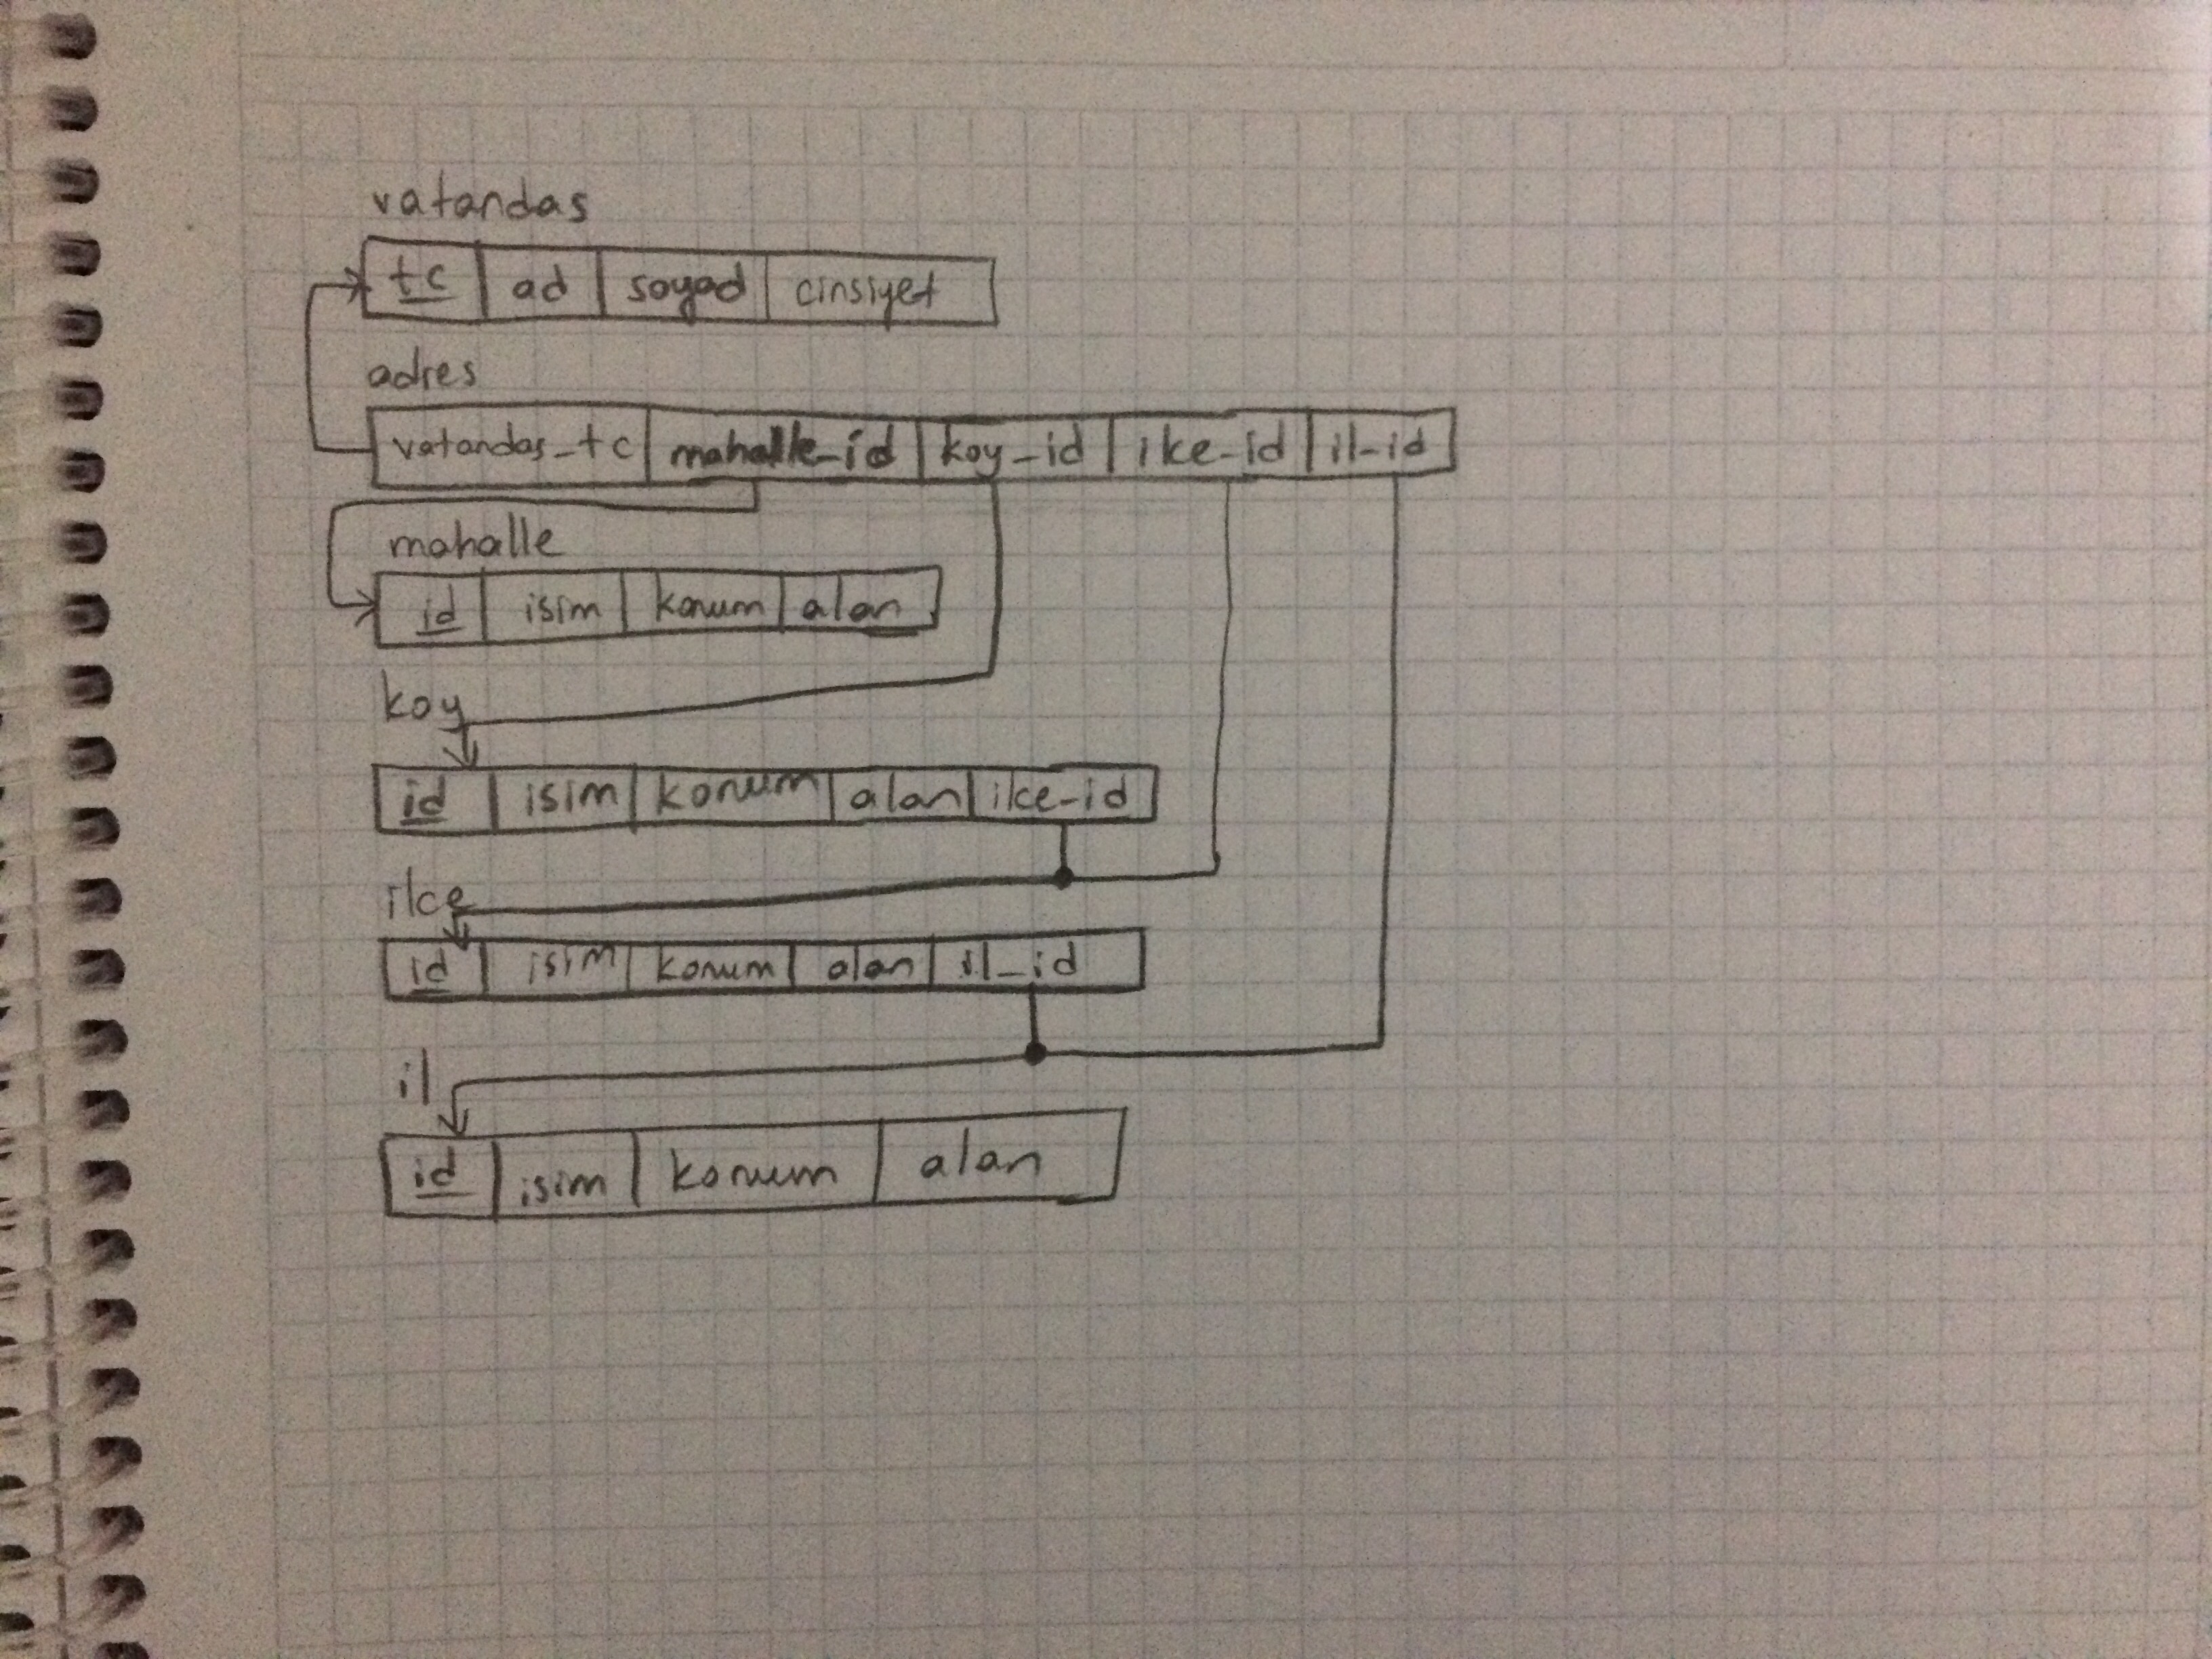 vatandas
tc ad soyad cinsiyet
adres
vatandas_tc mahalle_id koy_id ilce_id il_id
mahalle
id isim konum alan
koy
id isim konum alan ilce_id
ilce
id isim konum alan il_id
il
id isim konum alan